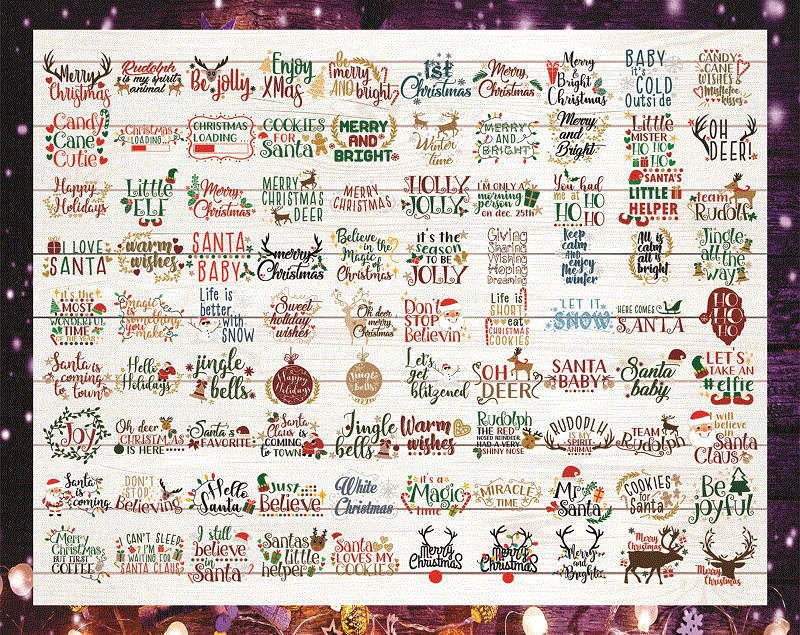 Merry
Christmas
Rudolph
is my spirit
animal
Be jolly
Enjoy
XMas
be
merry
AND bright
1st
Christmas
Merry
Christmas
Merry
&
Bright
Christmas
BABY
it's
COLD
Outside
CANDY
CANE
WISHES &
Mistletoe
kisses
Candy
Cane
Cutie
Christmas
LOADING...
CHRISTMAS
LOADING...
COOKIES
FOR
Santa
MERRY
AND
BRIGHT
Winter
time
MERRY
AND
BRIGHT
Merry
and
Bright
Little
MISTER
HO HO
HO
OH
DEER!
Happy
Holidays
Little
ELF
Merry
Christmas
MERRY
CHRISTMAS
DEER
MERRY
CHRISTMAS
HOLLY
JOLLY
I'M ONLY A
morning
person
on dec. 25th
You had
me at
HO
HO HO
SANTA'S
LITTLE
HELPER
team
Rudolph
I LOVE
SANTA
warm
wishes
SANTA
BABY
merry
Christmas
Believe
in the
Magic of
Christmas
it's the
season
TO BE
JOLLY
Giving
Sharing
Wishing
Hoping
Dreaming
keep
calm
AND
enjoy
the
winter
All is
calm
all is
bright
Jingle
all the
way
it's the
MOST
WONDERFUL
TIME
OF THE YEAR
Magic
is
something
you
make
Life is
better
with
SNOW
Sweet
holiday
wishes
Oh deer
merry
Christmas
Don't
STOP
Believin'
Life is
SHORT
eat
CHRISTMAS
COOKIES
LET IT
SNOW
HERE COMES
SANTA
HO
HO
HO
Santa is
coming
to town
Hello
Holidays
jingle
bells
Happy
Holiday
Jingle
Bells
Let's
get
blitzened
OH
DEER
SANTA
BABY
Santa
baby
LET'S
TAKE AN
#elfie
Joy
Oh deer
CHRISTMAS
IS HERE
Santa's
FAVORITE
Santa
Claus is
COMING
TO TOWN
Jingle
bells
Warm
wishes
Rudolph
THE RED
NOSED REINDEER
HAD A VERY
SHINY NOSE
RUDOPLH
IS MY
SPIRIT
ANIMAL
TEAM
Rudolph
I will
believe
in
Santa
Claus
Santa
is
coming
DON'T
STOP
Believing
Hello
Santa
JUST
Believe
White
Christmas
it's a
Magic
TIME
MIRACLE
TIME
Mr
Santa
COOKIES
for
Santa
Be
joyful
Merry
Christmas
BUT FIRST
COFFEE
I CAN'T SLEEP
I'M
WAITING FOR
SANTA CLAUS
I still
believe
in
Santa
Santas
little
helper
Santa
LOVES MY
COOKIES
merry
CHRISTMAS
merry
CHRISTMAS
Merry
and
Bright
Merry
Christmas
Merry
Christmas